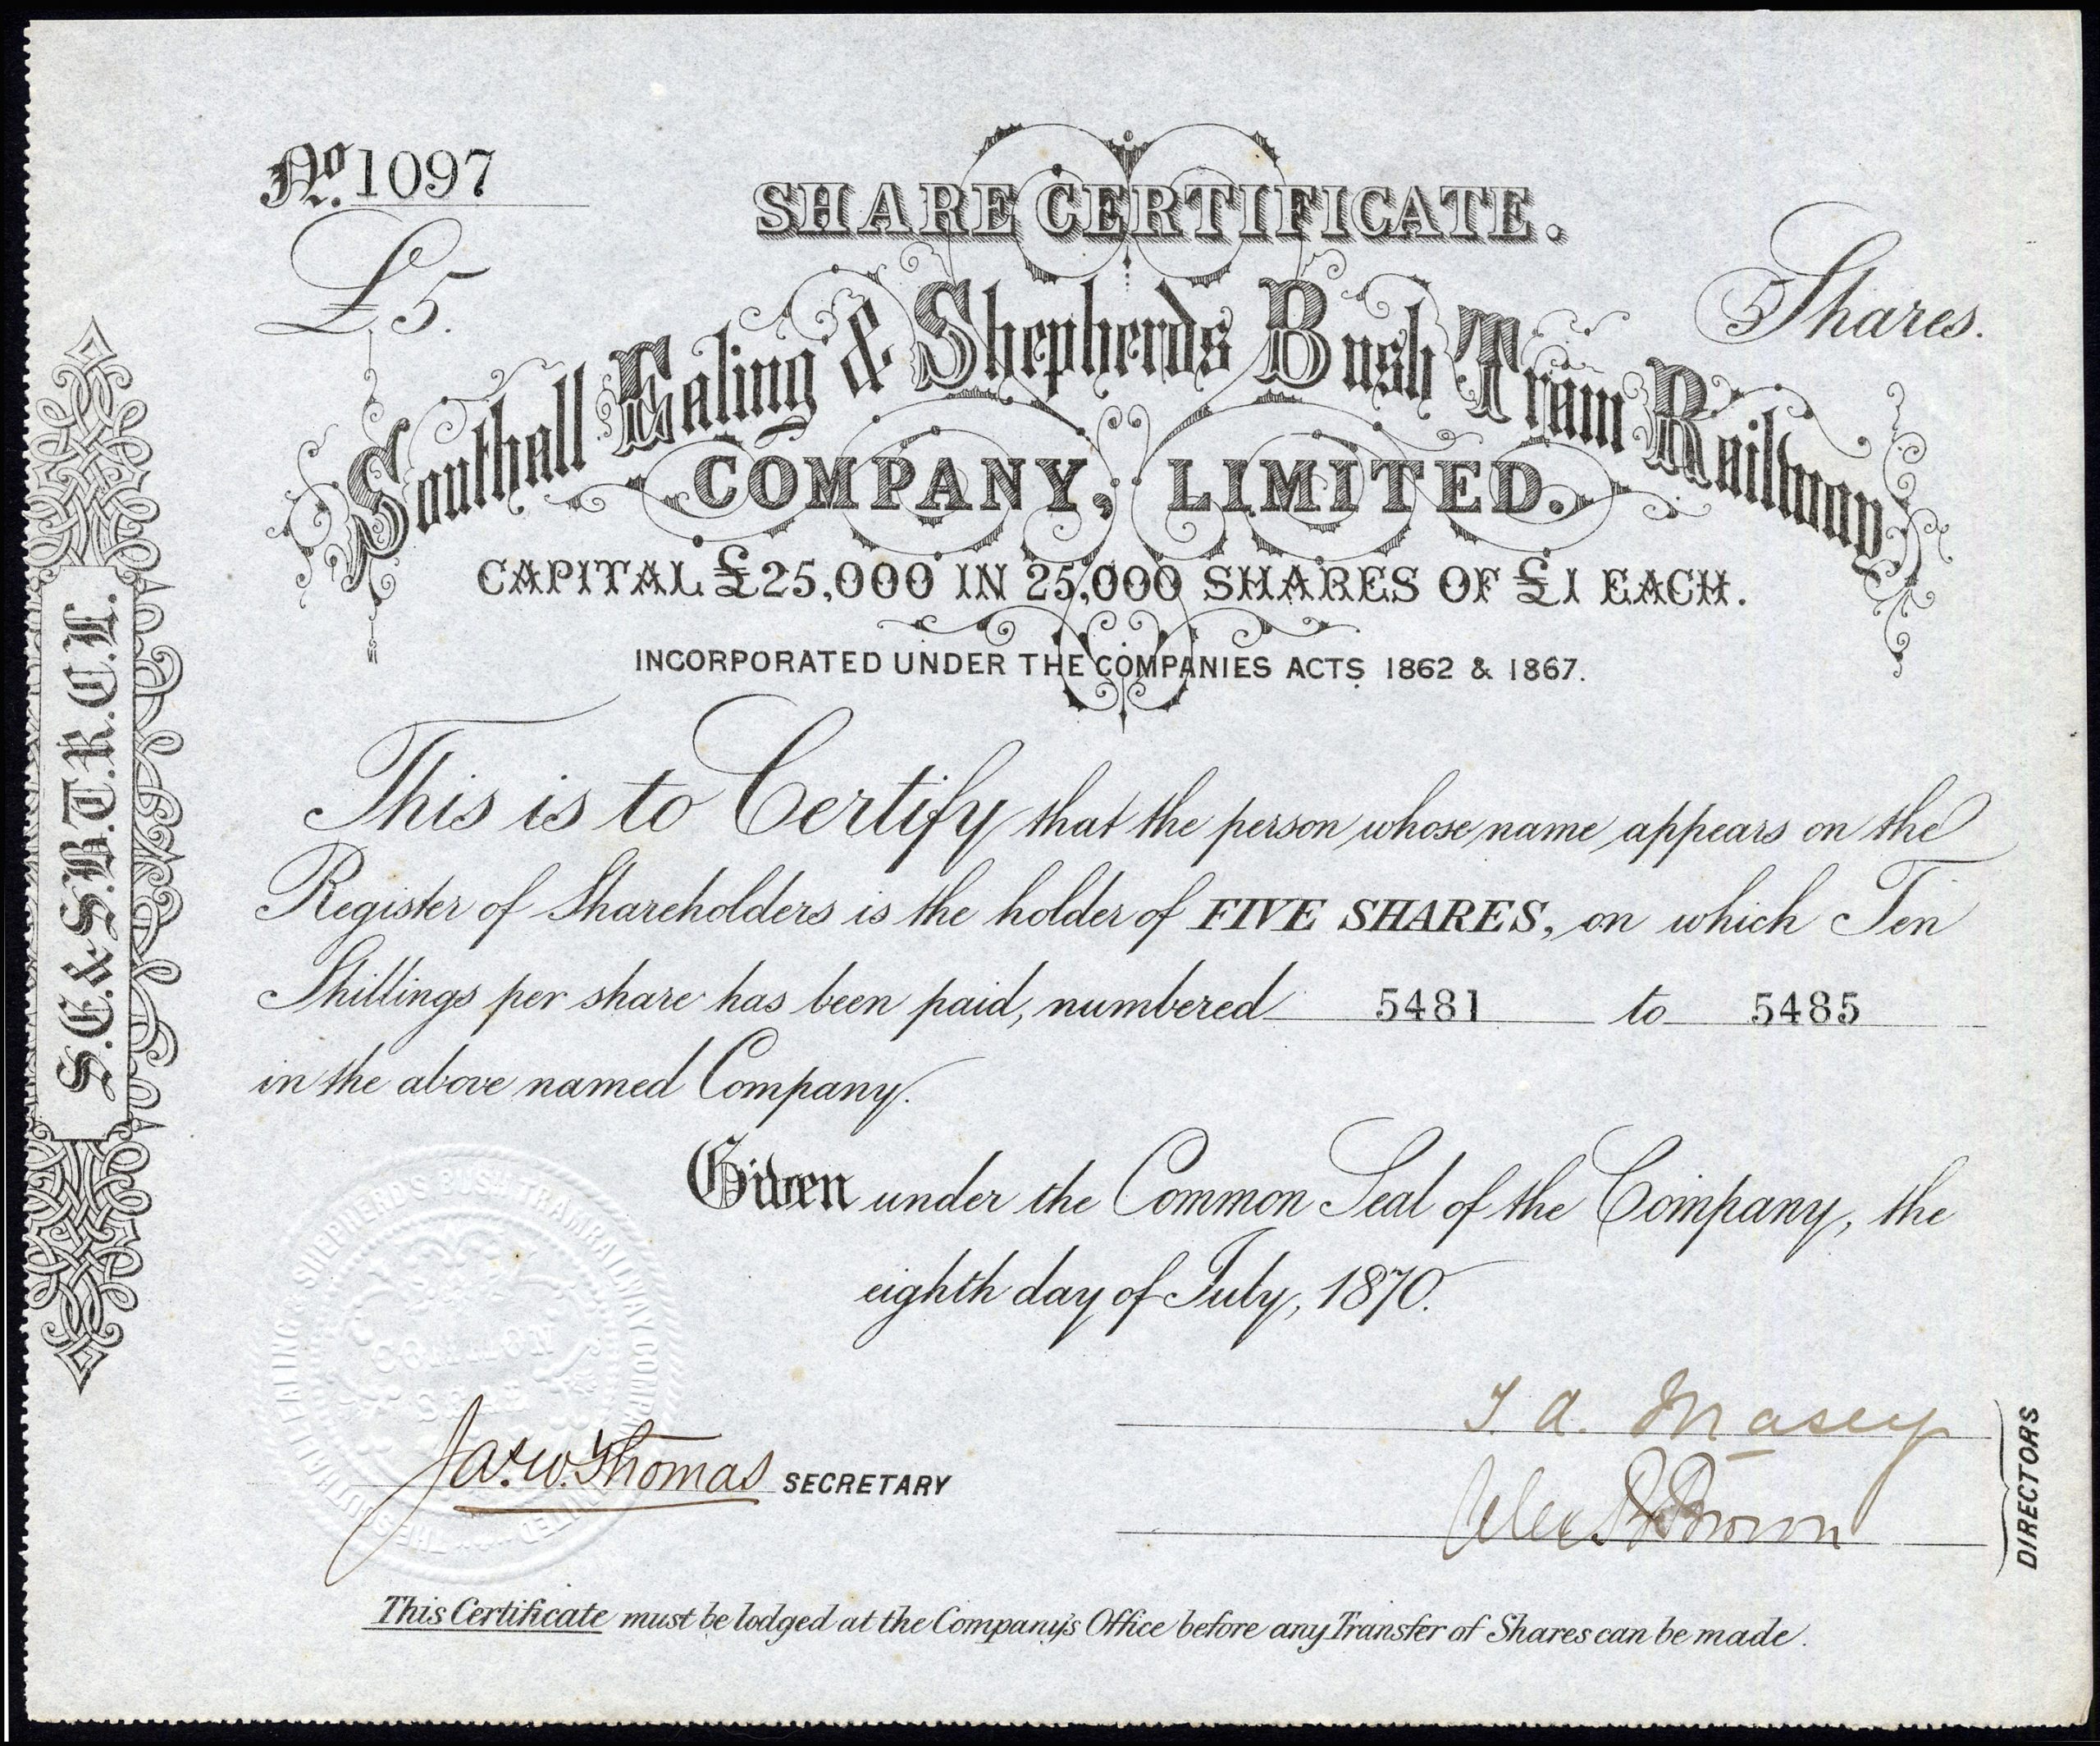 No. 1097
SHARE CERTIFICATE.
£5.
5 Shares.
Southall Ealing & Shepherds Bush Tram Railway
COMPANY, LIMITED.
CAPITAL £25,000 IN 25,000 SHARES OF £1 EACH.
INCORPORATED UNDER THE COMPANIES ACTS 1862 & 1867.
S.E.&S.B.T.R.C.L.
This is to Certify that the person whose name appears on the
Register of Shareholders is the holder of FIVE SHARES, on which Ten
Shillings per share has been paid, numbered 5481 to 5485
in the above named Company.
Given under the Common Seal of the Company, the
eighth day of July, 1870.
THE SOUTHALL EALING & SHEPHERD'S BUSH TRAM RAILWAY COMPANY LIMITED
COMMON
SEAL
Jas. W. Thomas SECRETARY
T A. Masey
Alex Brown
DIRECTORS
This Certificate must be lodged at the Company's Office before any Transfer of Shares can be made.